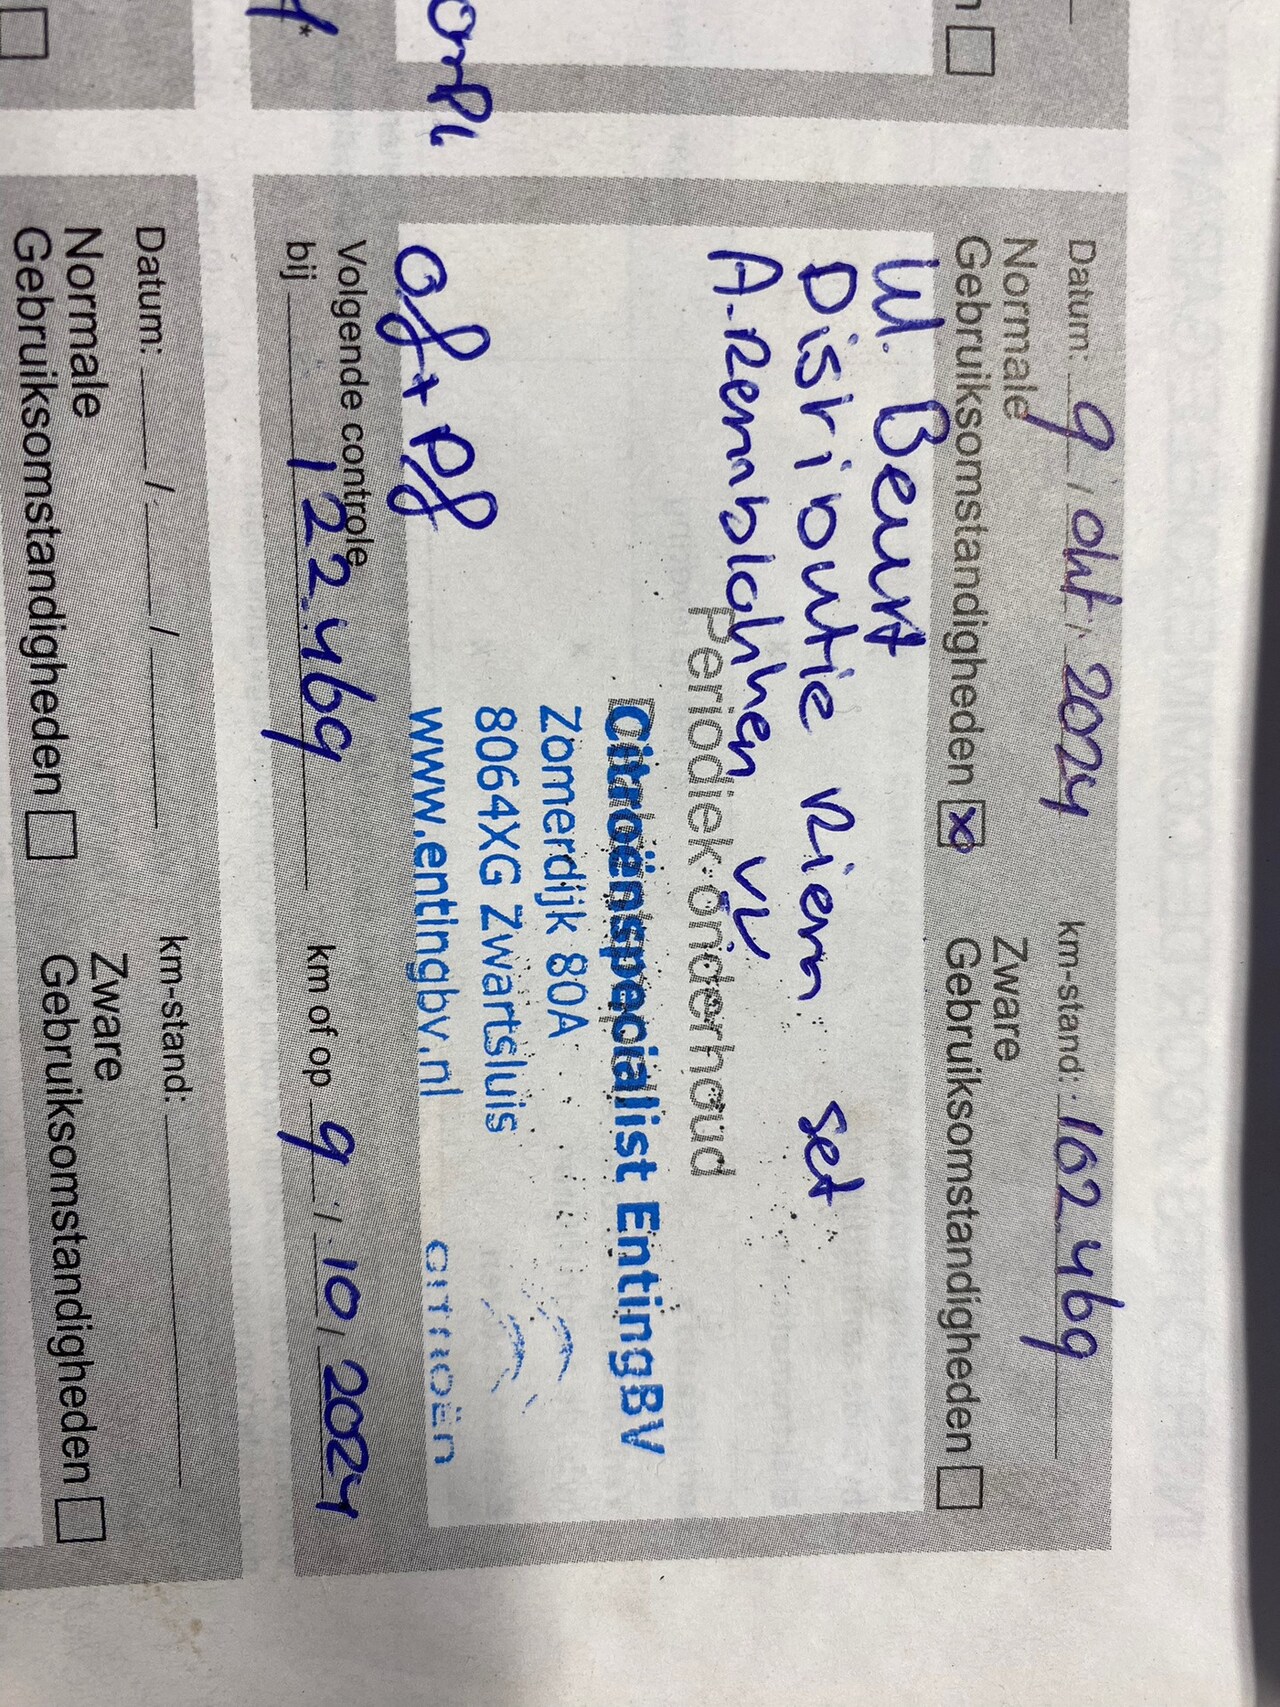 Datum: 9 / okt / 2024 km-stand: 102.469
Normale Gebruiksomstandigheden x Zware Gebruiksomstandigheden
Beurt
Distributie Riem set
A-Remblokken
Periodiek onderhoud
Citroënspecialist Enting BV
Zomerdijk 80A
8064XG Zwartsluis
www.entingbv.nl CITROËN
of + pf
Volgende controle
bij 122.469 km of op 9 / 10 / 2024
Datum: / / km-stand:
Normale Gebruiksomstandigheden Zware Gebruiksomstandigheden